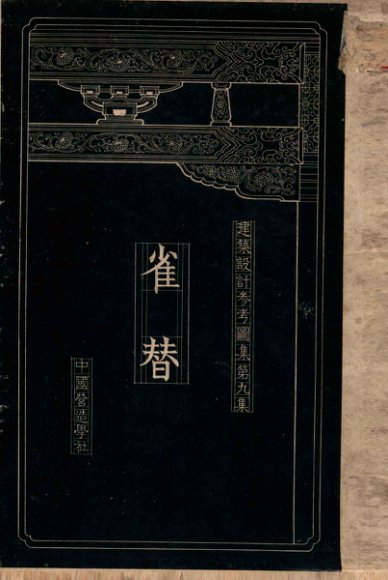 建築設計參考圖集第九集
雀替
中國營造學社